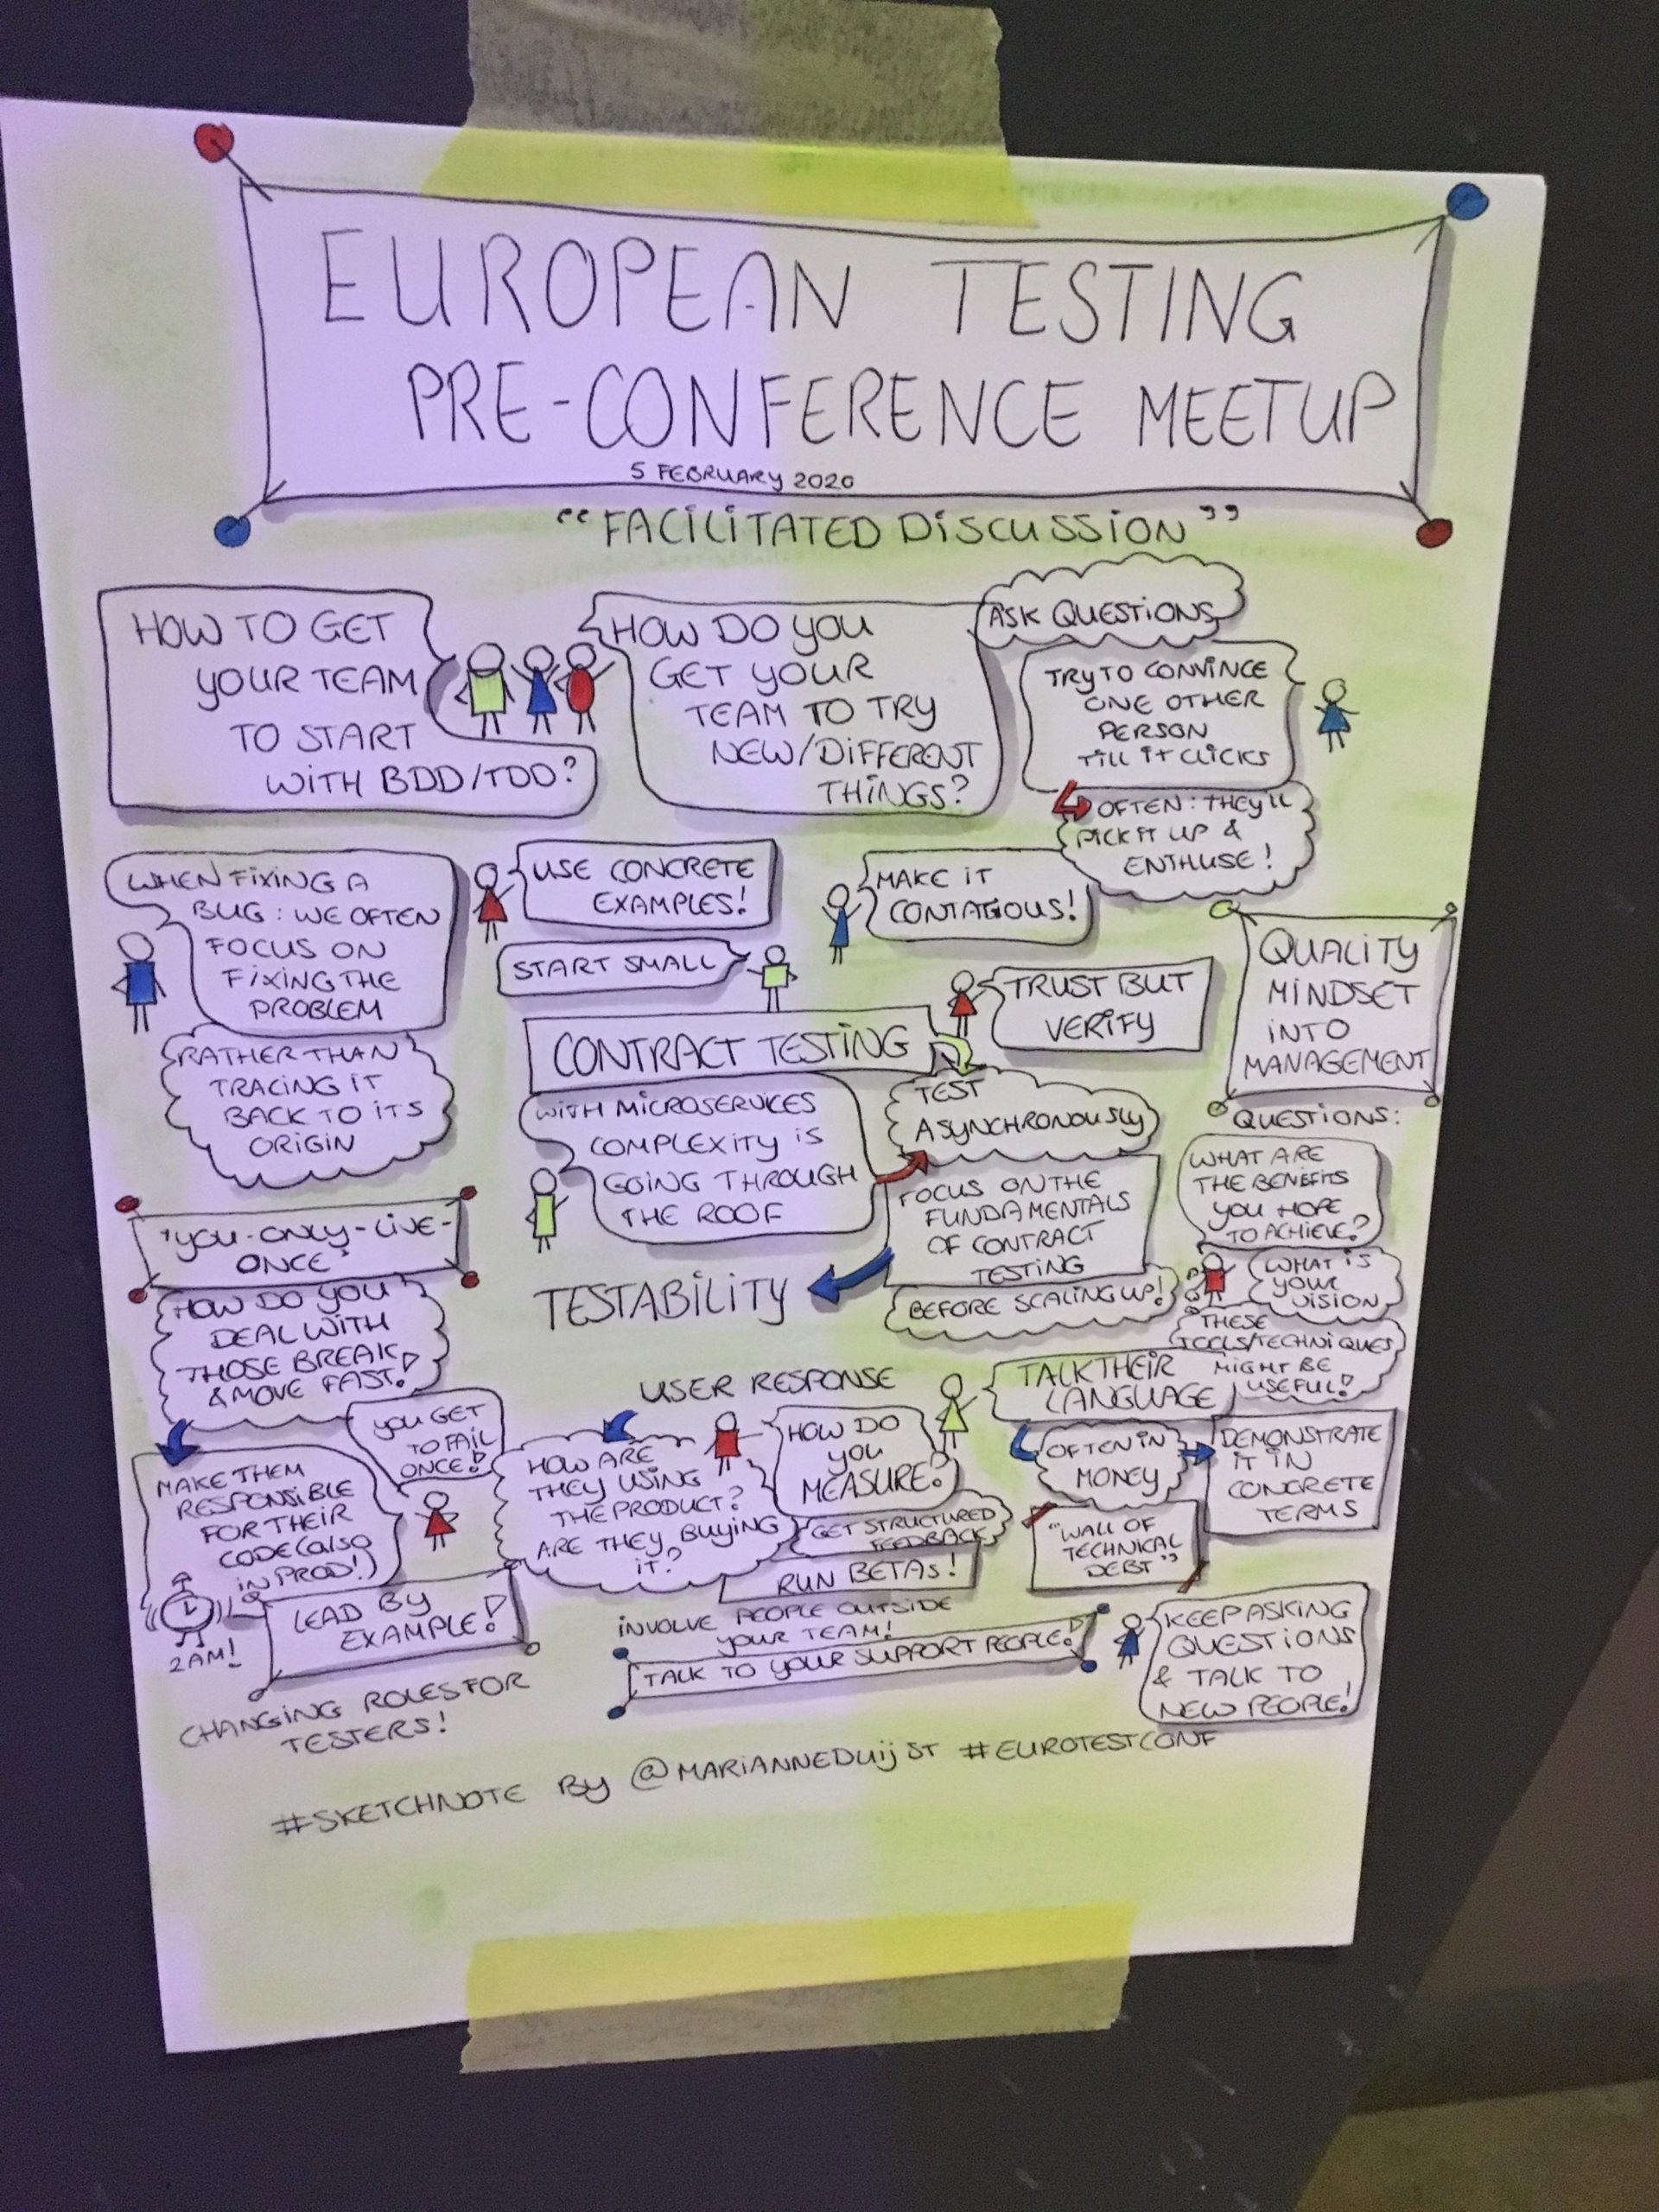 EUROPEAN TESTING
PRE-CONFERENCE MEETUP
5 FEBRUARY 2020
"FACILITATED DISCUSSION"
HOW TO GET
YOUR TEAM
TO START
WITH BDD/TDD?
HOW DO YOU
GET YOUR
TEAM TO TRY
NEW/DIFFERENT
THINGS?
ASK QUESTIONS
TRY TO CONVINCE
ONE OTHER
PERSON
TILL IT CLICKS
OFTEN: THEY'LL
PICK IT UP &
ENTHUSE!
WHEN FIXING A
BUG: WE OFTEN
FOCUS ON
FIXING THE
PROBLEM
RATHER THAN
TRACING IT
BACK TO ITS
ORIGIN
USE CONCRETE
EXAMPLES!
START SMALL
MAKE IT
CONTAGIOUS!
TRUST BUT
VERIFY
QUALITY
MINDSET
INTO
MANAGEMENT
CONTRACT TESTING
WITH MICROSERVICES
COMPLEXITY IS
GOING THROUGH
THE ROOF
TEST
ASYNCHRONOUSLY
FOCUS ON THE
FUNDAMENTALS
OF CONTRACT
TESTING
BEFORE SCALING UP!
TESTABILITY
QUESTIONS:
WHAT ARE
THE BENEFITS
YOU HOPE
TO ACHIEVE?
WHAT IS
YOUR
VISION
THESE
TOOLS/TECHNIQUES
MIGHT BE
USEFUL!
"YOU-ONLY-LIVE-
ONCE"
HOW DO YOU
DEAL WITH
THOSE BREAK
& MOVE FAST!
YOU GET
TO FAIL
ONCE!
MAKE THEM
RESPONSIBLE
FOR THEIR
CODE (ALSO
IN PROD!)
2AM!
LEAD BY
EXAMPLE!
CHANGING ROLES FOR
TESTERS!
USER RESPONSE
HOW ARE
THEY USING
THE PRODUCT?
ARE THEY BUYING
IT?
HOW DO
YOU
MEASURE?
GET STRUCTURED
FEEDBACK
RUN BETAs!
INVOLVE PEOPLE OUTSIDE
YOUR TEAM!
TALK TO YOUR SUPPORT PEOPLE!
TALK THEIR
LANGUAGE
OFTEN IN
MONEY
DEMONSTRATE
IT IN
CONCRETE
TERMS
"WALL OF
TECHNICAL
DEBT"
KEEP ASKING
QUESTIONS
& TALK TO
NEW PEOPLE!
#SKETCHNOTE BY @MARIANNEDUIJST #EUROTESTCONF